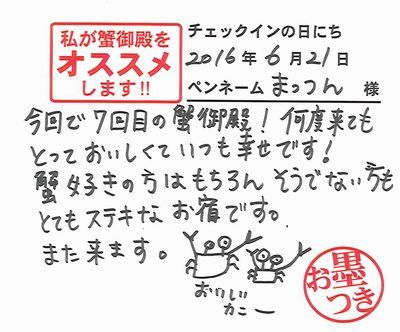 私が蟹御殿を
オススメ
します!!
チェックインの日にち
2016年6月21日
ペンネーム まっつん 様
今回で7回目の蟹御殿！何度来ても
とっておいしくていつも幸せです！
蟹好きの方はもちろん そうでない方も
とてもステキな お宿です。
また来ます。
おいしい
カニー
お墨つき